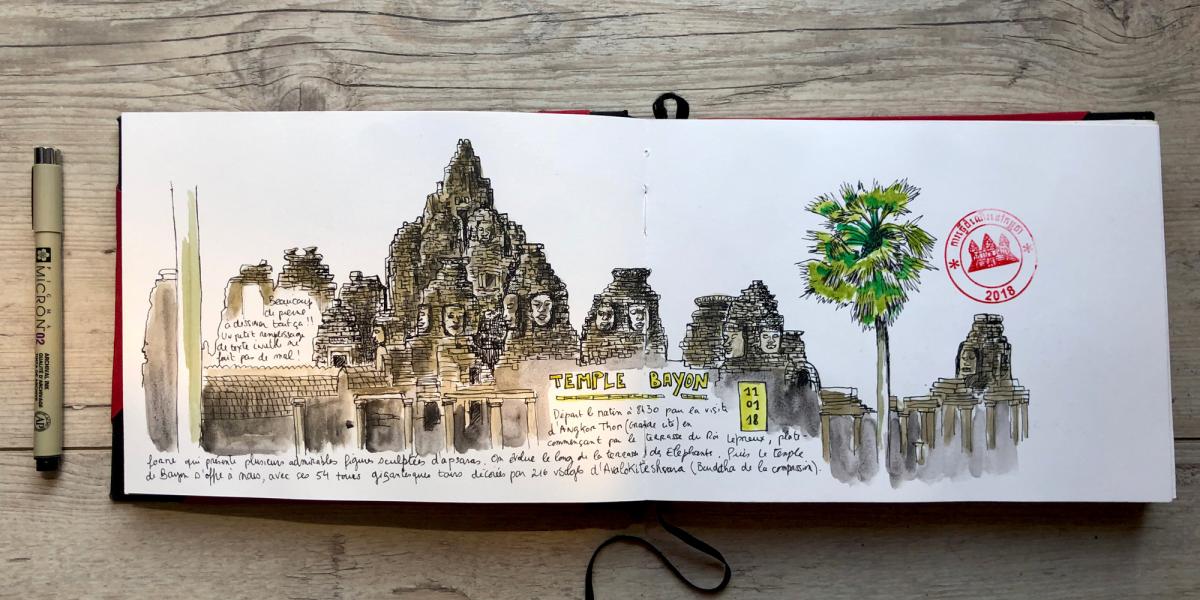 Beaucoup
de pierre
à dessiner tout ça !!
Un petit remplissage
de texte ne
fait pas de mal !
TEMPLE BAYON
11
01
18
Départ le matin à 8H30 pour la visite
d'Angkor Thom (Grande cité) en
commençant par la terrasse du Roi Lépreux, plate-
forme qui présente plusieurs admirables figures sculptées d'apsaras. On évolue le long de la terrasse des Eléphants. Puis le temple
de Bayon s'offre à nous, avec ses 54 tours gigantesques tours décorées par 216 visages d'Avalokiteshvara (Bouddha de la compassion).
2018
PIGMA
MICRON 02
ARCHIVAL INK